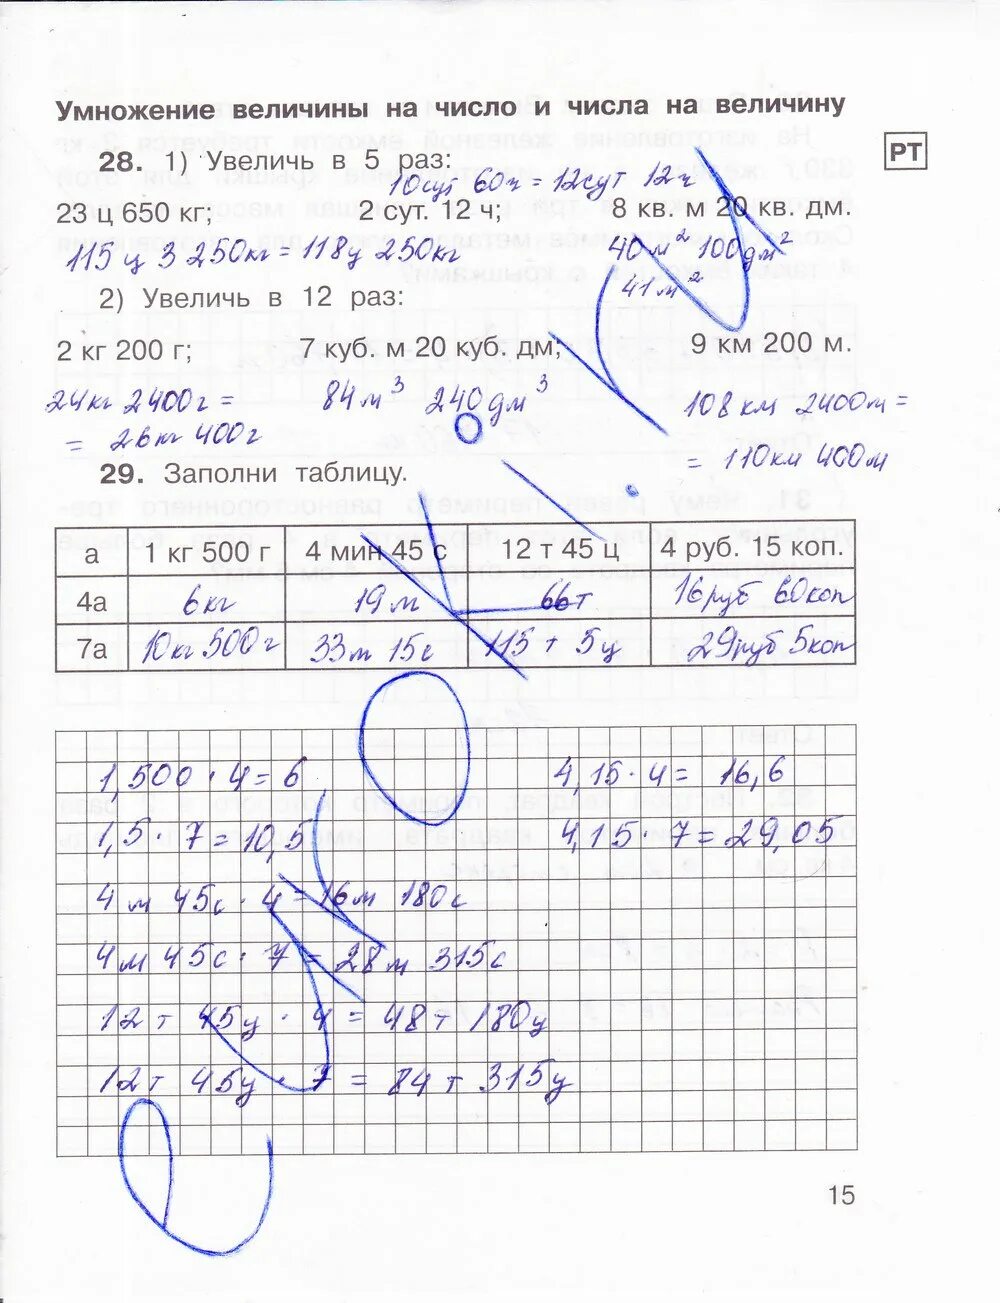 Умножение величины на число и числа на величину
РТ
28. 1) Увеличь в 5 раз:
10сут 60ч = 12сут 12ч
23 ц 650 кг; 2 сут. 12 ч; 8 кв. м 20 кв. дм.
115 ц 3 250кг = 118ц 250кг 40 м² 100дм²
41м²
2) Увеличь в 12 раз:
2 кг 200 г; 7 куб. м 20 куб. дм; 9 км 200 м.
24кг 2400г = 84м³ 240дм³ 108км 2400м =
= 26кг 400г = 110км 400м
29. Заполни таблицу.
а 1 кг 500 г 4 мин 45 с 12 т 45 ц 4 руб. 15 коп.
4а 6кг 19м 66т 16руб 60коп
7а 10кг 500г 33м 15с 115т 5ц 29руб 5коп
1,500 · 4 = 6 4,15 · 4 = 16,6
1,5 · 7 = 10,5 4,15 · 7 = 29,05
4м 45с · 4 = 16м 180с
4м 45с · 7 = 28м 315с
12т 45ц · 4 = 48т 180ц
12т 45ц · 7 = 84т 315ц
15